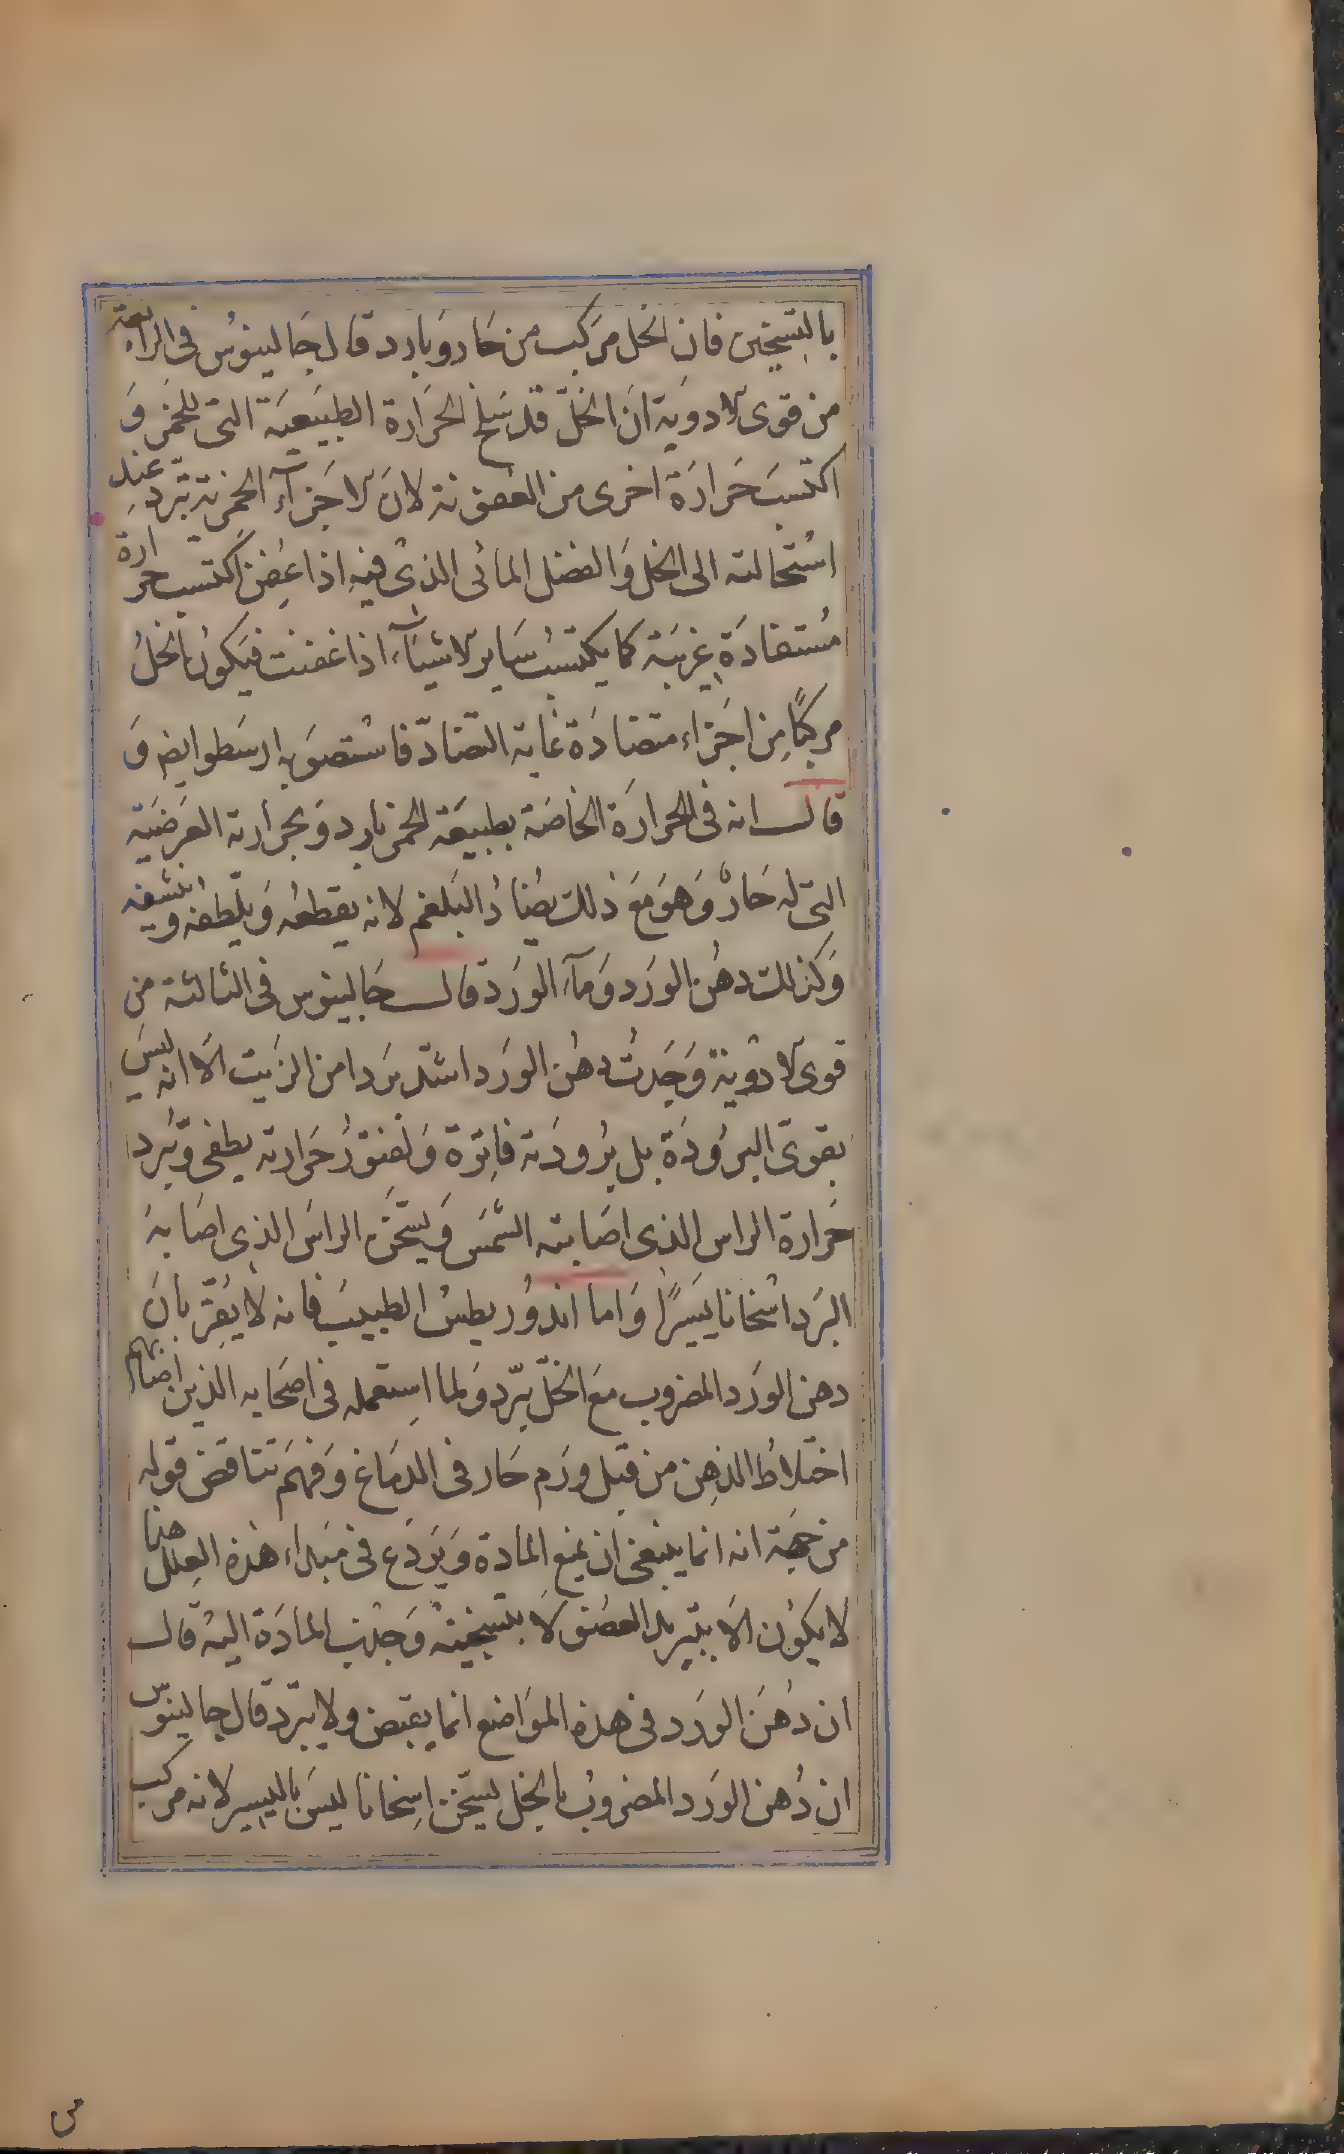 بالتسخين فان الخل مركب من حار وبارد قال جالينوس فى الرابعة
من قوى الادوية ان الخلّ قد سلخ الحرارة الطبيعية التى للخمر و
اكتسب حرارة اخرى من العفونة لان الاجزآء الخمرية تبرد عند
استحالته الى الخل والفضل المائى الذى فيه اذا عفن اكتسب حرارة
مستفادة غريبة كما يكتسب ساير الاشيآء اذا عفنت فيكون الخل
مركبًا من اجزاء متضادة غاية التضادّ فاستصوبه ارسطو ايض و
قال انه فى الحرارة الخاصة بطبيعة الخمر بارد وبحرارته العرضية
التى له حارٌ وهو مع ذلك يضاد البلغم لانه يقطعه ويلطفه وينشفه
وكذلك دهن الورد ومآء الورد قال جالينوس فى الثالثة من
قوى الادوية وجدت دهن الورد اشد بردا من الزيت الا انه ليس
بقوىّ البرودة بل برودته فاترة ولفتور حرارته يطفى ويبرد
حرارة الراس الذى اصابته الشمس ويسخن الراس الذى اصابه
البرد اسخانا يسيرًا واما اندوريطس الطبيب فانه لا يقرّ بان
دهن الورد المضروب مع الخلّ يبرّد ولما استعمله فى اصحابه الذين اصابهم
اختلاط الذهن من قبل ورم حار فى الدماغ وفهم تناقض قوله
من جهة انه انما ينبغى ان يمنع المادة ويردع فى مبداء هذه العلل وهذا
لا يكون الا بتبريد العضو لا بتسخينه وجذب المادة اليه قال
ان دهن الورد فى هذه المواضع انما يقبض ولا يبرّد قال جالينوس
ان دُهن الورد المضروب بالخل يسخّن اسخانا ليس باليسير لانه مركب